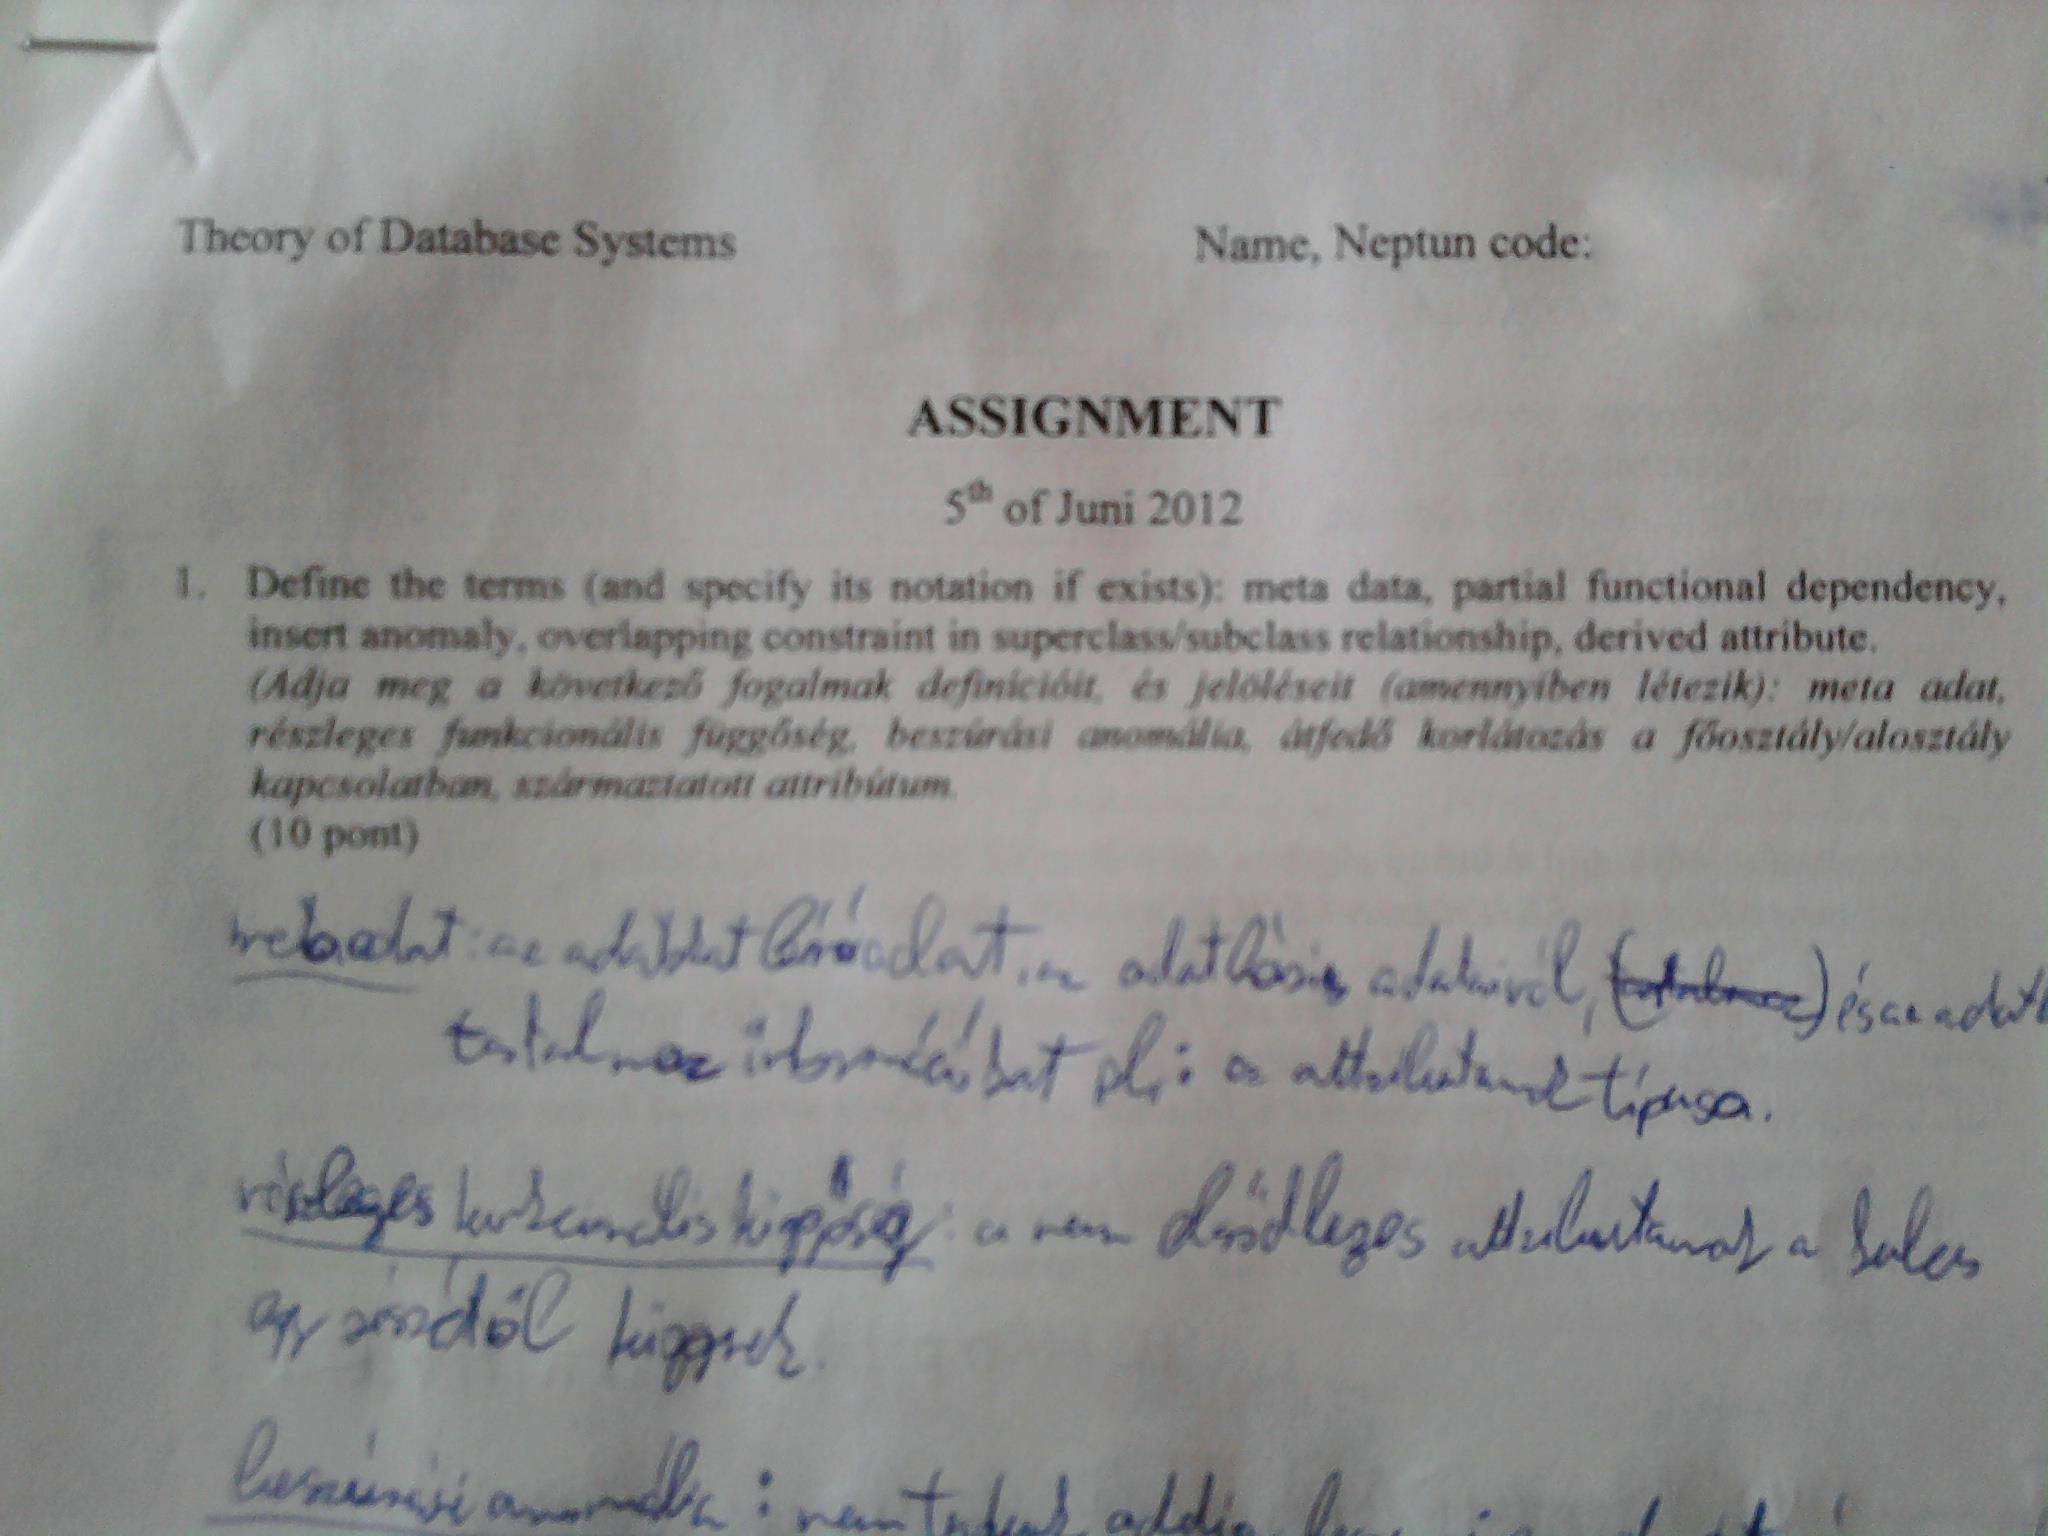 Theory of Database Systems
Name, Neptun code:
ASSIGNMENT
5th of Juni 2012
1. Define the terms (and specify its notation if exists): meta data, partial functional dependency,
insert anomaly, overlapping constraint in superclass/subclass relationship, derived attribute.
(Adja meg a következő fogalmak definícióit, és jelöléseit (amennyiben létezik): meta adat,
részleges funkcionális függőség, beszúrási anomália, átfedő korlátozás a főosztály/alosztály
kapcsolatban, származtatott attribútum.
(10 pont)
metaadat: az adatokat leíró adat, az adatbázis adatairól, és az
tartalmaz információkat pl.: az attribútumok típusa.
részleges funkcionális függőség: a nem elsődleges attribútumok a kulcs
egy részétől függnek.
beszúrási anomália: nem tudunk addig